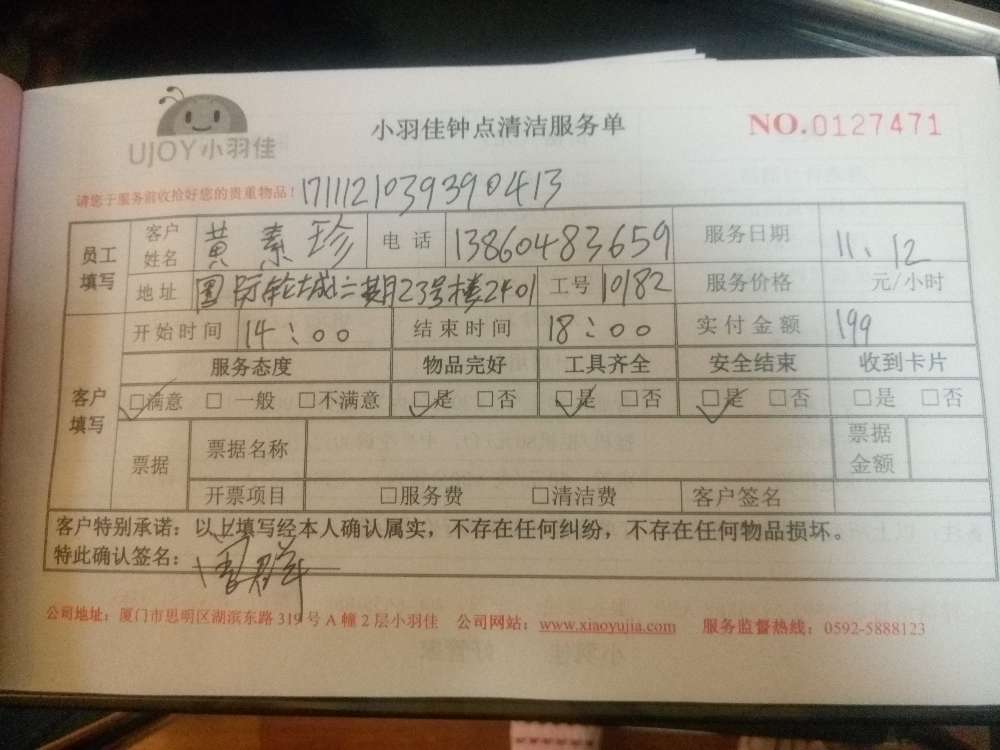 UJOY小羽佳
小羽佳钟点清洁服务单
NO.0127471
请您于服务前收拾好您的贵重物品！171112103939 0413
员工填写 客户姓名 黄素珍 电话 13860483659 服务日期 11.12
地址 国际轮城二期23号楼2401 工号 10182 服务价格 元/小时
客户填写 开始时间 14:00 结束时间 18:00 实付金额 199
服务态度 物品完好 工具齐全 安全结束 收到卡片
☑满意 □一般 □不满意 ☑是 □否 ☑是 □否 ☑是 □否 □是 □否
票据 票据名称 票据金额
开票项目 □服务费 □清洁费 客户签名
客户特别承诺：以上填写经本人确认属实，不存在任何纠纷，不存在任何物品损坏。
特此确认签名：
公司地址：厦门市思明区湖滨东路319号A幢2层小羽佳 公司网站：www.xiaoyujia.com 服务监督热线：0592-5888123